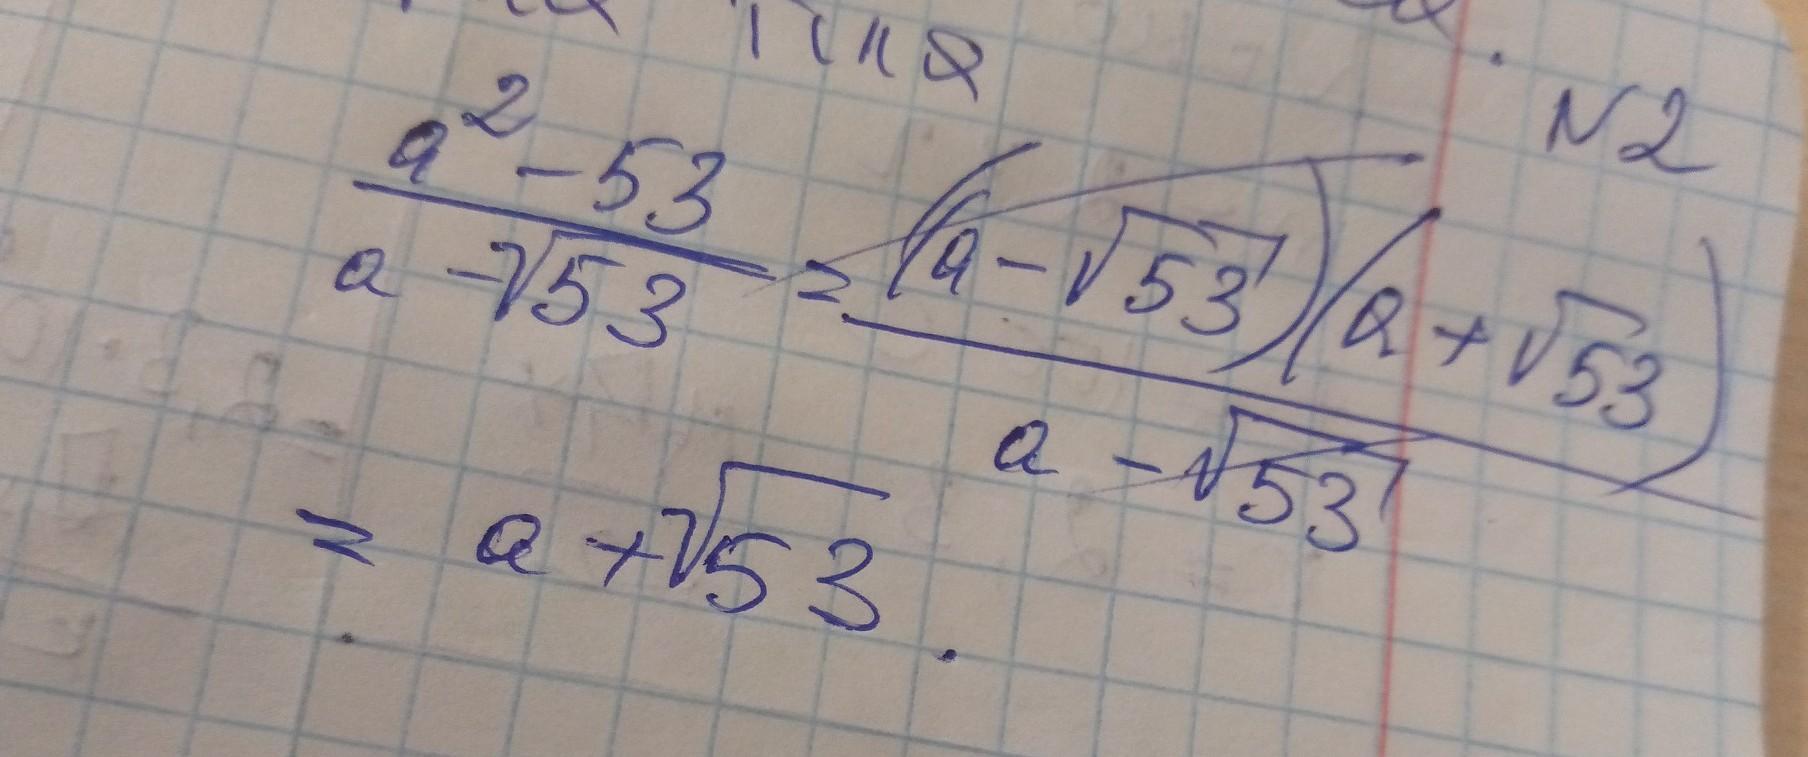 N2
a² - 53 / a - √53 = (a - √53)(a + √53) / a - √53
= a + √53.